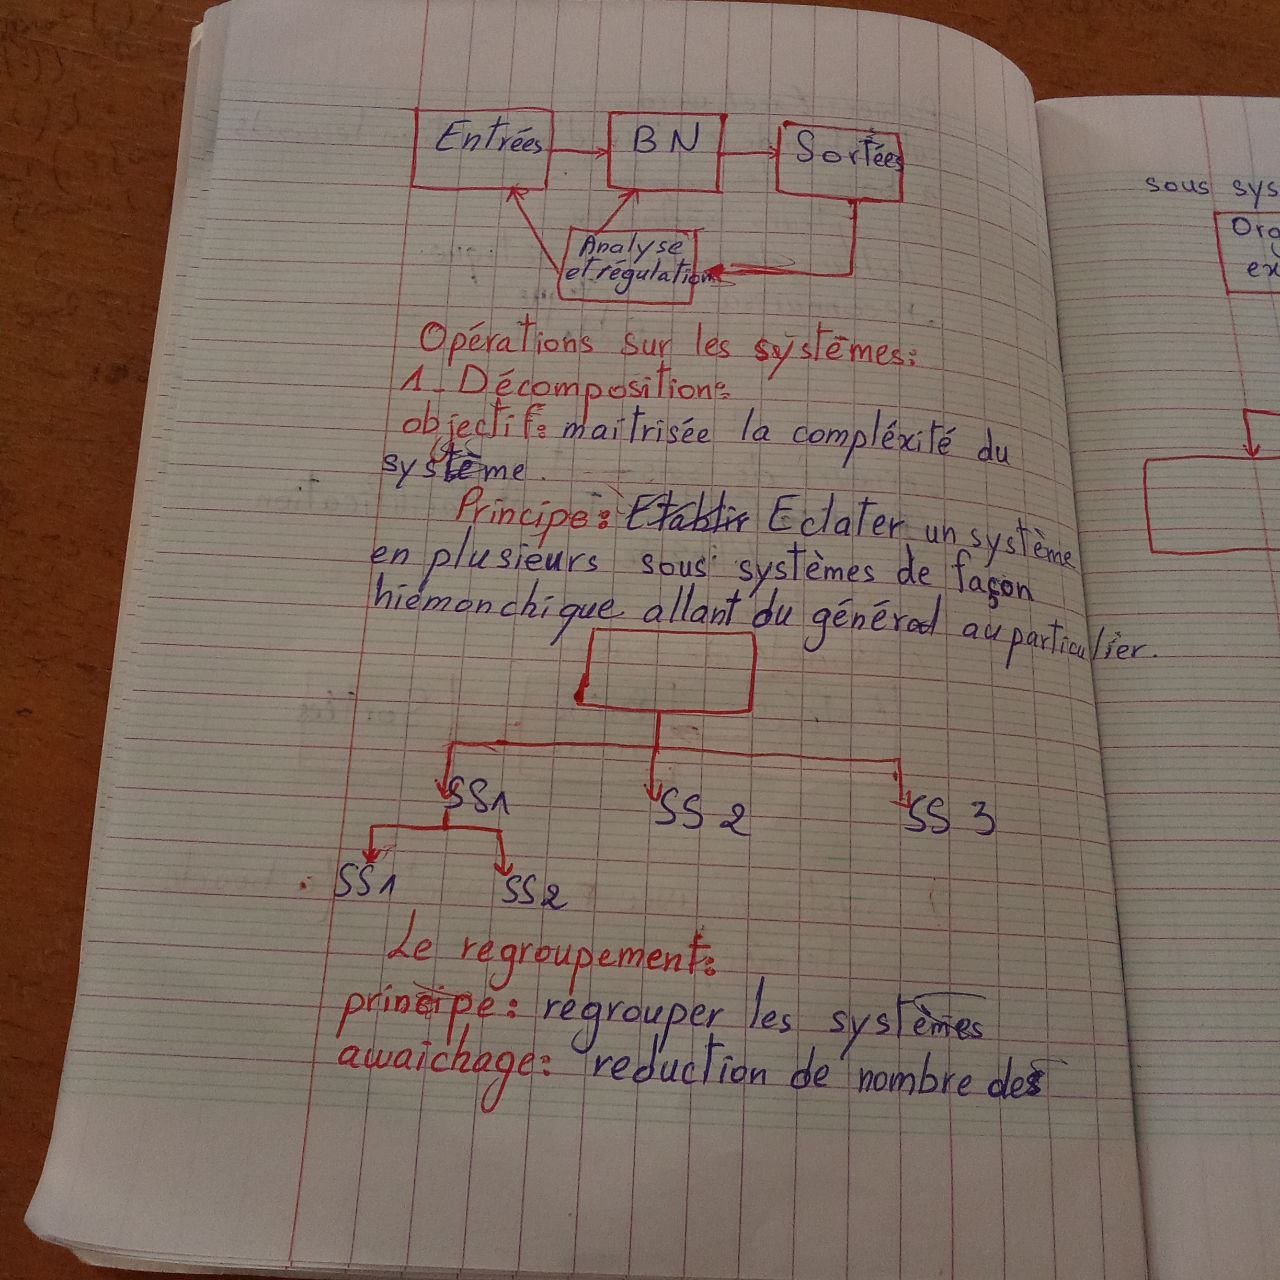 Entrées BN Sortées
Analyse
et régulation
Opérations sur les systèmes:
1_ Décomposition:
objectif: maitrisée la compléxité du
système.
Principe: Etablir Eclater un système
en plusieurs sous systèmes de façon
hiémonchique allant du général au particulier.
SS1 SS2 SS3
SS1 SS2
Le regroupement:
principe: regrouper les systèmes
awaichage: reduction de nombre des
sous sys
Org
ex